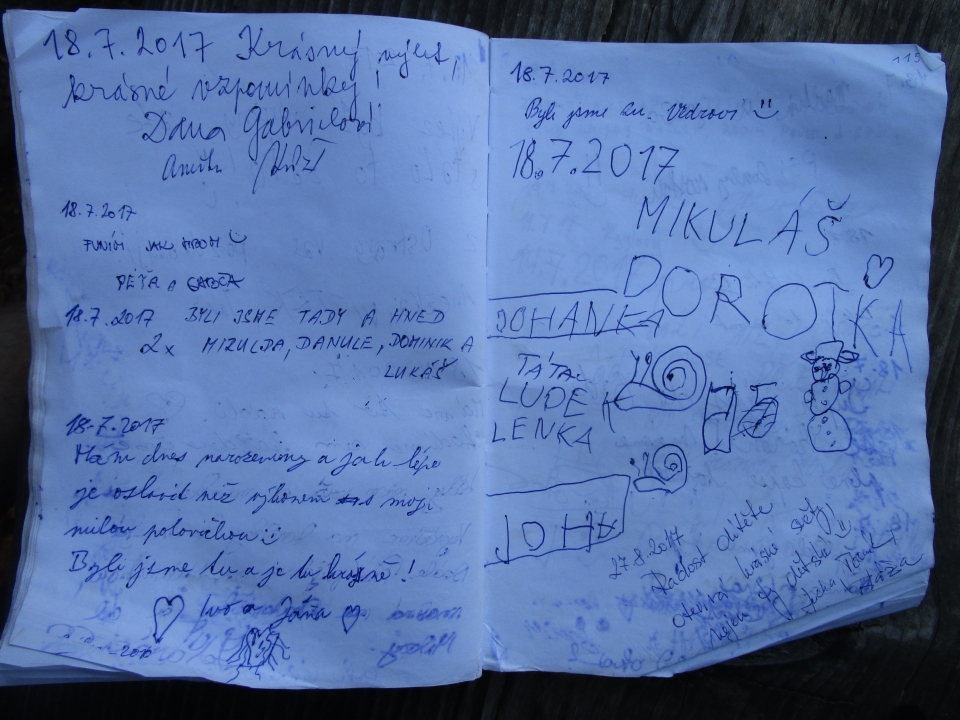 18.7.2017 Krásný výlet,
krásné vzpomínky!
Dana Gabrielová
18.7.2017
FUNÍM JAK HROM
PÉŤA a
18.7.2017 BYLI JSME TADY A HNED
2x MIZULDA, DANULE, DOMINIK A
LUKÁŠ
18.7.2017
Mám dnes narozeniny a jak lépe
je oslavit než výkonem s mojí
milou polovičkou
Byli jsme tu a je tu krásně!
Ivo a Jáňa
115
18.7.2017
Byli jsme tu. Vidrovi
18.7.2017
MIKULÁŠ
DOROTKA
JOHANKA
TÁTA
LUDE
LENKA
JOHA
27.8.2017
Radost dítěte
otevírá krásné
nejen dětské!